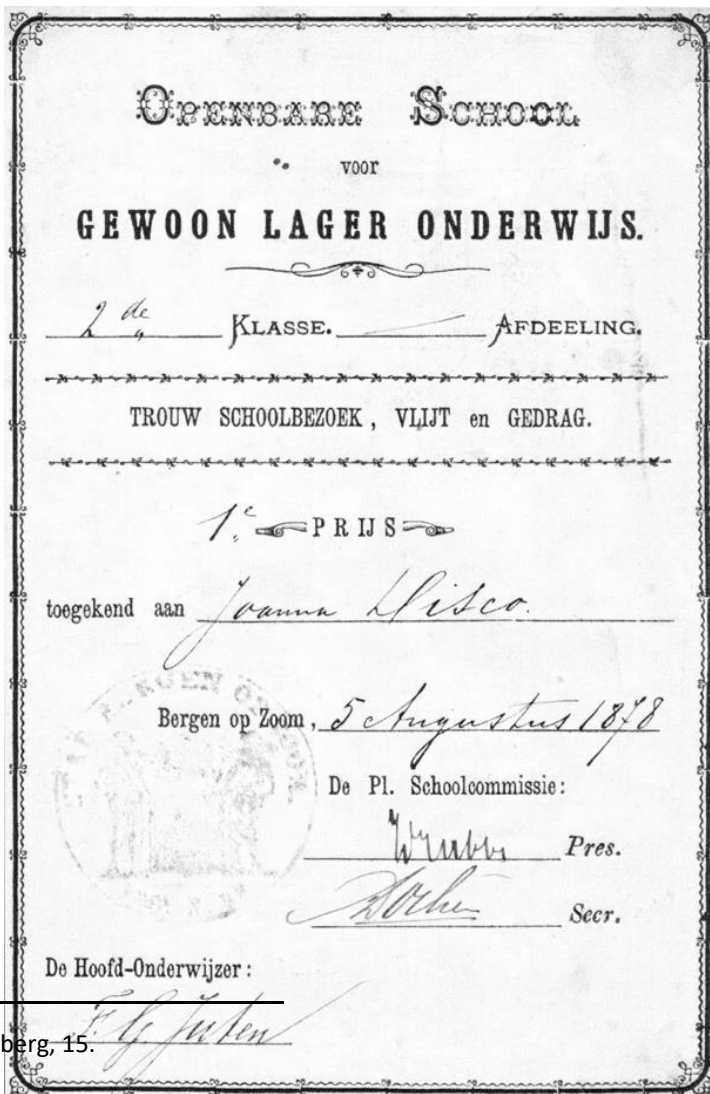 OPENBARE SCHOOL
voor
GEWOON LAGER ONDERWIJS.
2de KLASSE. — AFDEELING.
TROUW SCHOOLBEZOEK, VLIJT en GEDRAG.
1e PRIJS
toegekend aan Joanna Disco.
BERGEN OP ZOOM
Bergen op Zoom, 5 Augustus 1878
De Pl. Schoolcommissie:
Pres.
Secr.
De Hoofd-Onderwijzer:
F. G. Juten
berg, 15.